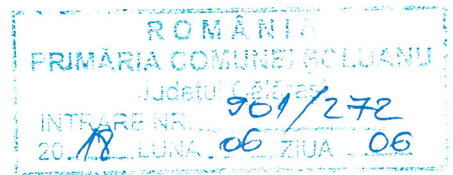 ROMÂNIA
PRIMĂRIA COMUNEI SOLDANU
Judetul Călărasi
INTRARE NR. 901/272
20.18 LUNA 06 ZIUA 06